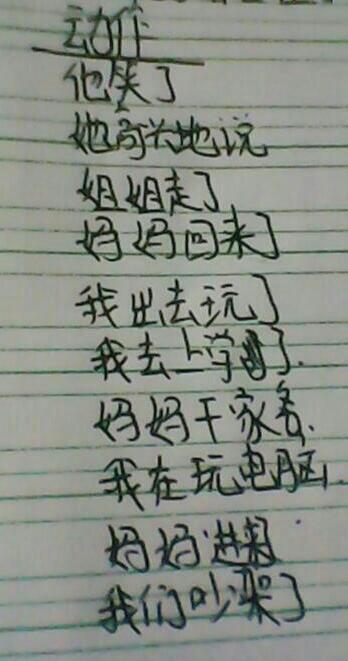 动作
他笑了
她高兴地说
姐姐走了
妈妈回来了
我出去玩了
我去上学了.
妈妈干家务.
我在玩电脑.
妈妈进来
我们吵架了